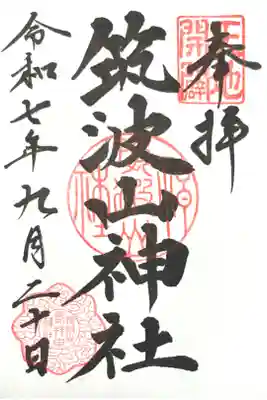 奉拝
天地開闢
筑波山神社
令和七年九月二十日